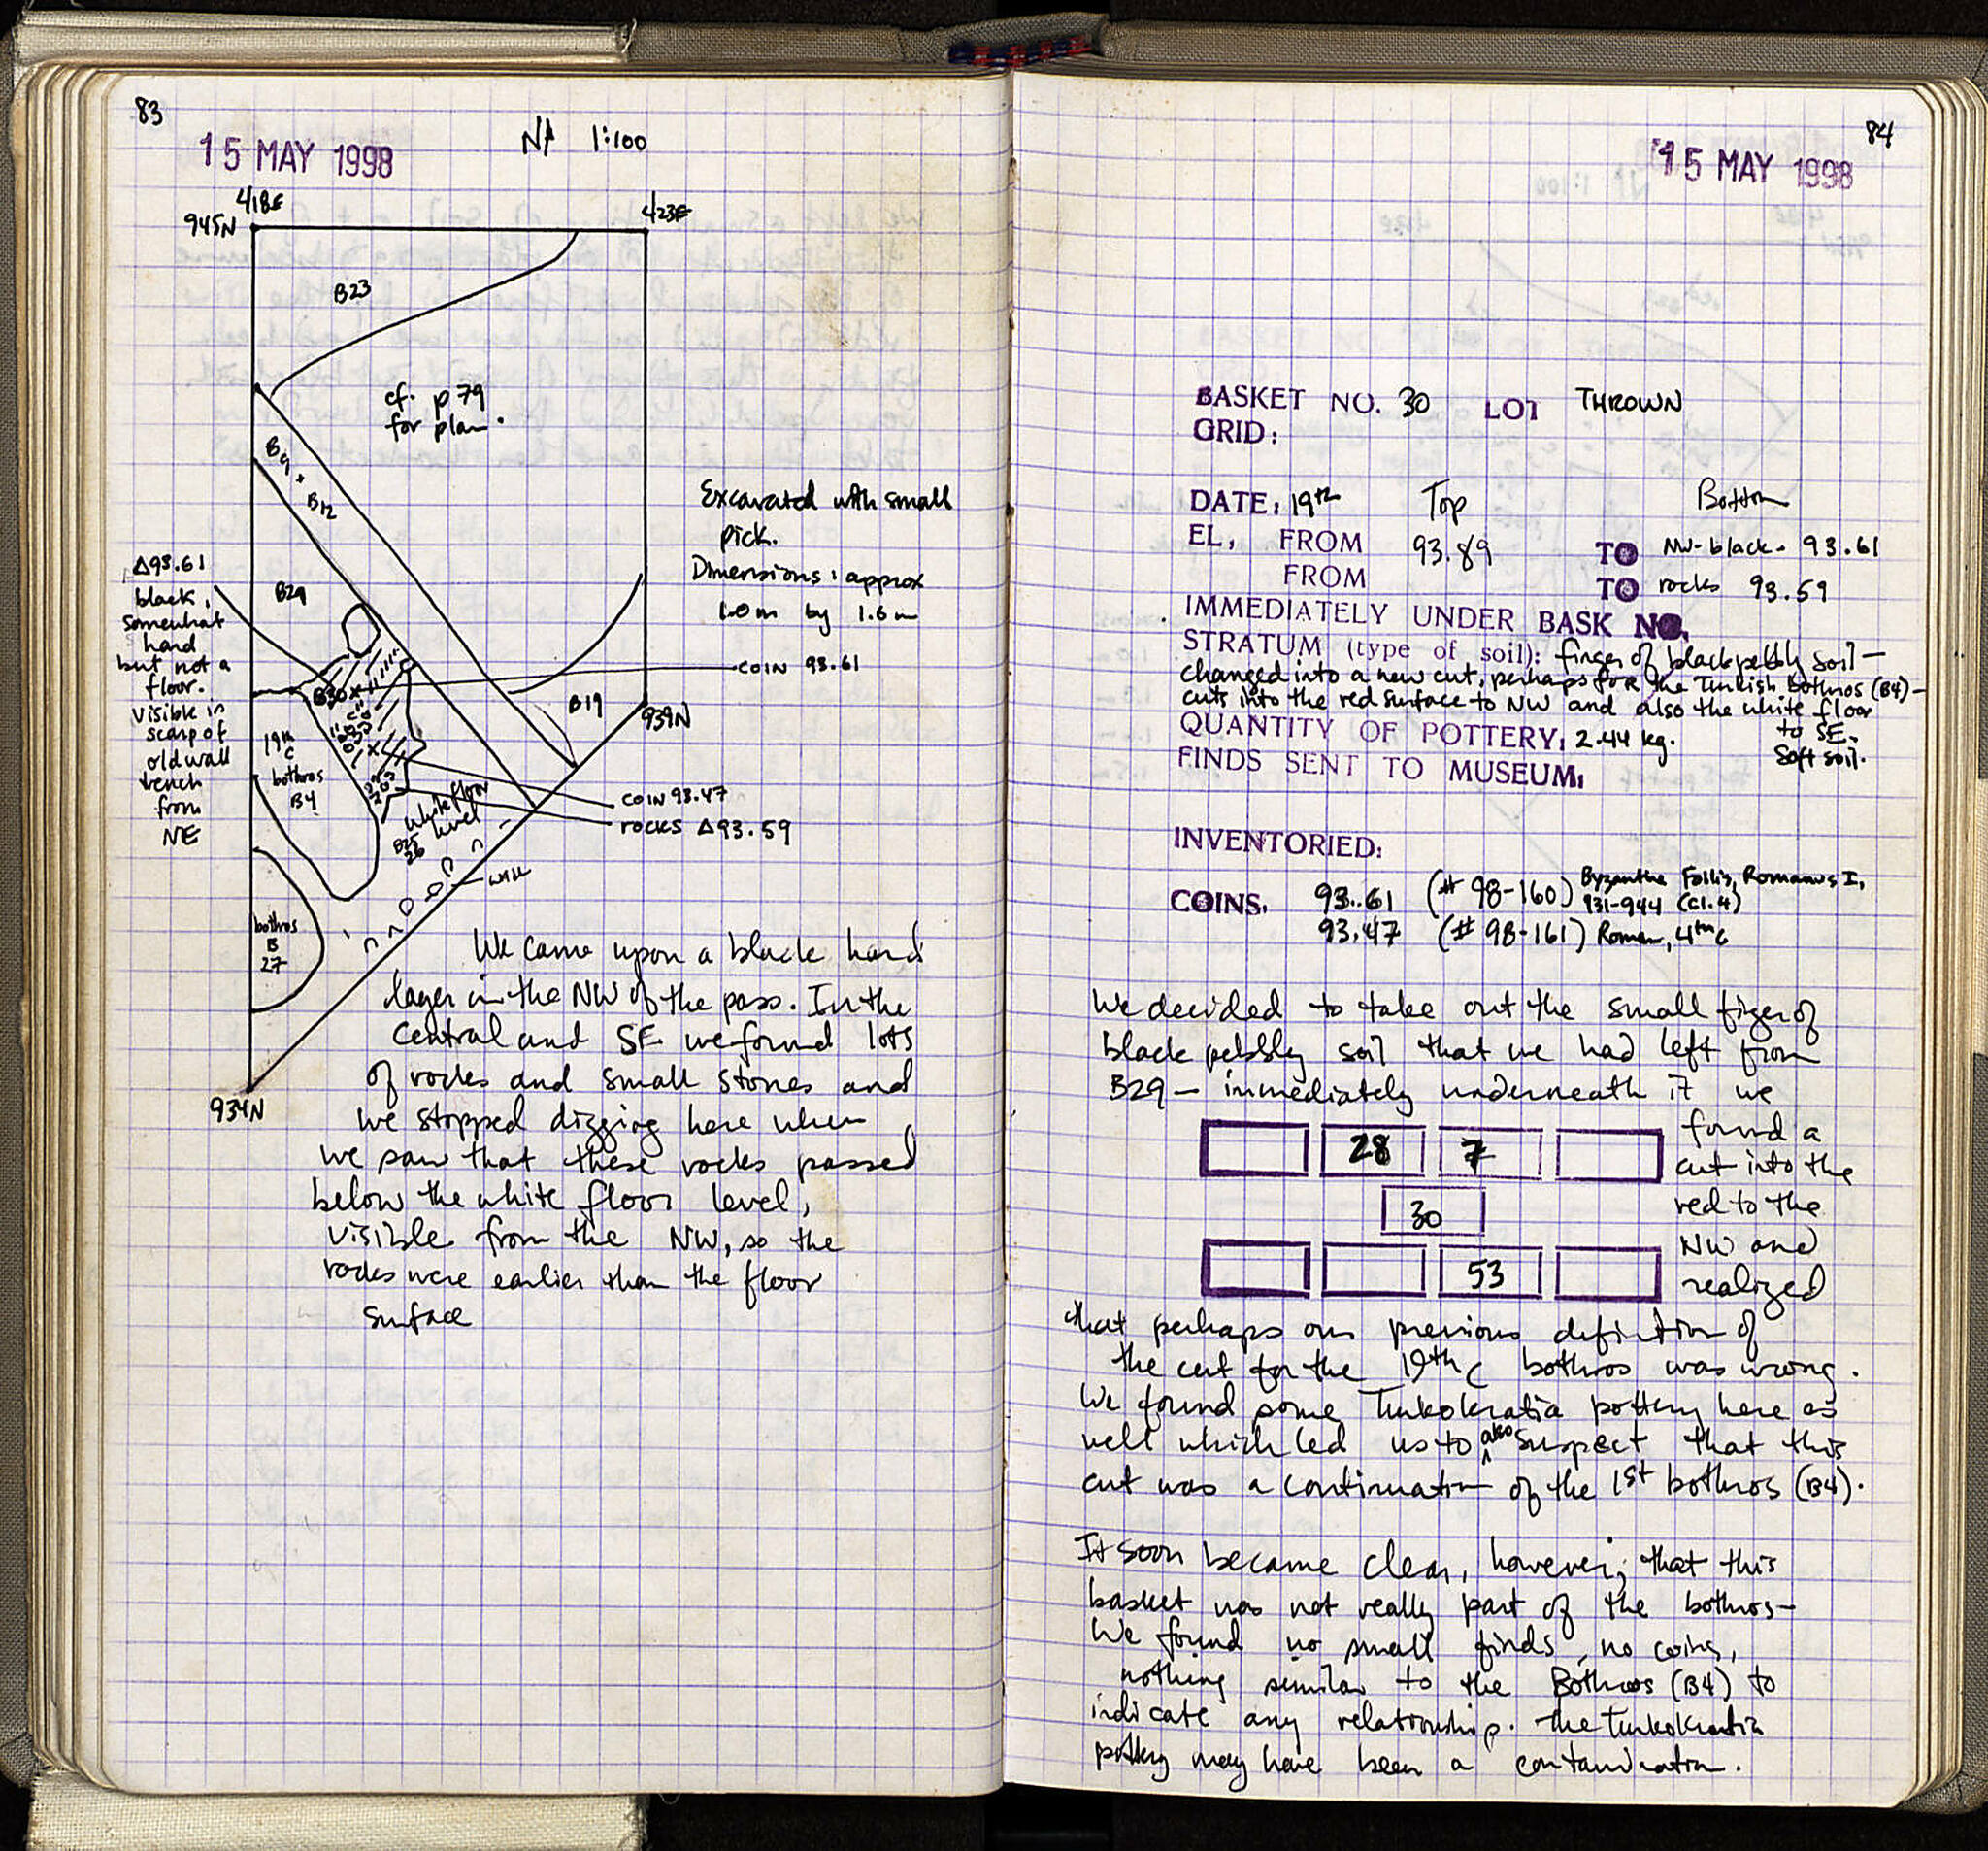 83
15 MAY 1998
N 1:100
418E
423E
945N
B23
cf. p 79
for plan.
B9 +
B12
Excavated with small
pick.
Dimensions: approx
1.0m by 1.6m
Δ93.61
black,
somewhat
hard
but not a
floor.
Visible in
scarp of
old wall
trench
from
NE
B29
COIN 93.61
B30
B19
939N
19th
c
bothros
B4
COIN 93.47
rocks Δ93.59
white floor
level
B25
26
wall
bothros
B
27
934N
We came upon a black hard
layer in the NW of the pass. In the
central and SE we found lots
of rocks and small stones and
we stopped digging here when
we saw that these rocks passed
below the white floor level,
visible from the NW, so the
rocks were earlier than the floor
surface
84
15 MAY 1998
BASKET NO. 30 LOT THROWN
GRID:
DATE: 19th Top Bottom
EL, FROM 93.89 TO NW-black. 93.61
FROM TO rocks 93.59
IMMEDIATELY UNDER BASK NO.
STRATUM (type of soil): finger of black pebbly soil—
changed into a new cut, perhaps for the Turkish bothros (B4)—
cuts into the red surface to NW and also the white floor
to SE.
QUANTITY OF POTTERY: 2.44 kg. Soft soil.
FINDS SENT TO MUSEUM:
INVENTORIED:
COINS. 93.61 (# 98-160) Byzantine Follis, Romanus I,
931-944 (Cl. 4)
93.47 (# 98-161) Roman, 4th c
We decided to take out the small figer of
black pebbly soil that we had left from
B29 — immediately underneath it we
found a
28 7
cut into the
30
red to the
NW and
53
realized
that perhaps our previous defintion of
the cut for the 19th c bothros was wrong.
We found some Turkokratia pottery here as
well which led us to also suspect that this
cut was a continuation of the 1st bothros (B4).
It soon became clear, however, that this
basket was not really part of the bothros—
We found no small finds, no coins,
nothing similar to the Bothros (B4) to
indicate any relationship. The Turkokratia
pottery may have been a contamination.